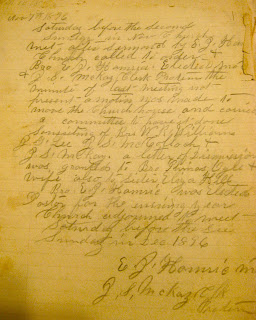 Nov 1896
Saturday before the second
Sunday in Nov Church
met after sermon by E. J. Ham
Church called to order
Bro E. J. Hamric Elected Mo
& J. S. McKay Clerk Protem the
minute of last meeting not
present a motion was made to
move the Church house and carried
a committee to put it done
consisting of Bro W. R. Williams
J. S. Lee J. S. McGollock &
J. S. McKay. a letter of Dismission
was granted to Bro Thomas Cyle &
wife also to Sister Eliza Kelly
Bro E. J. Hamric was elected
Pastor for the ensuing year
Church adjourned to meet
Saturday before the
Sunday in Dec. 1896
E J. Hamric M
J, S, McKay Clk
Protem